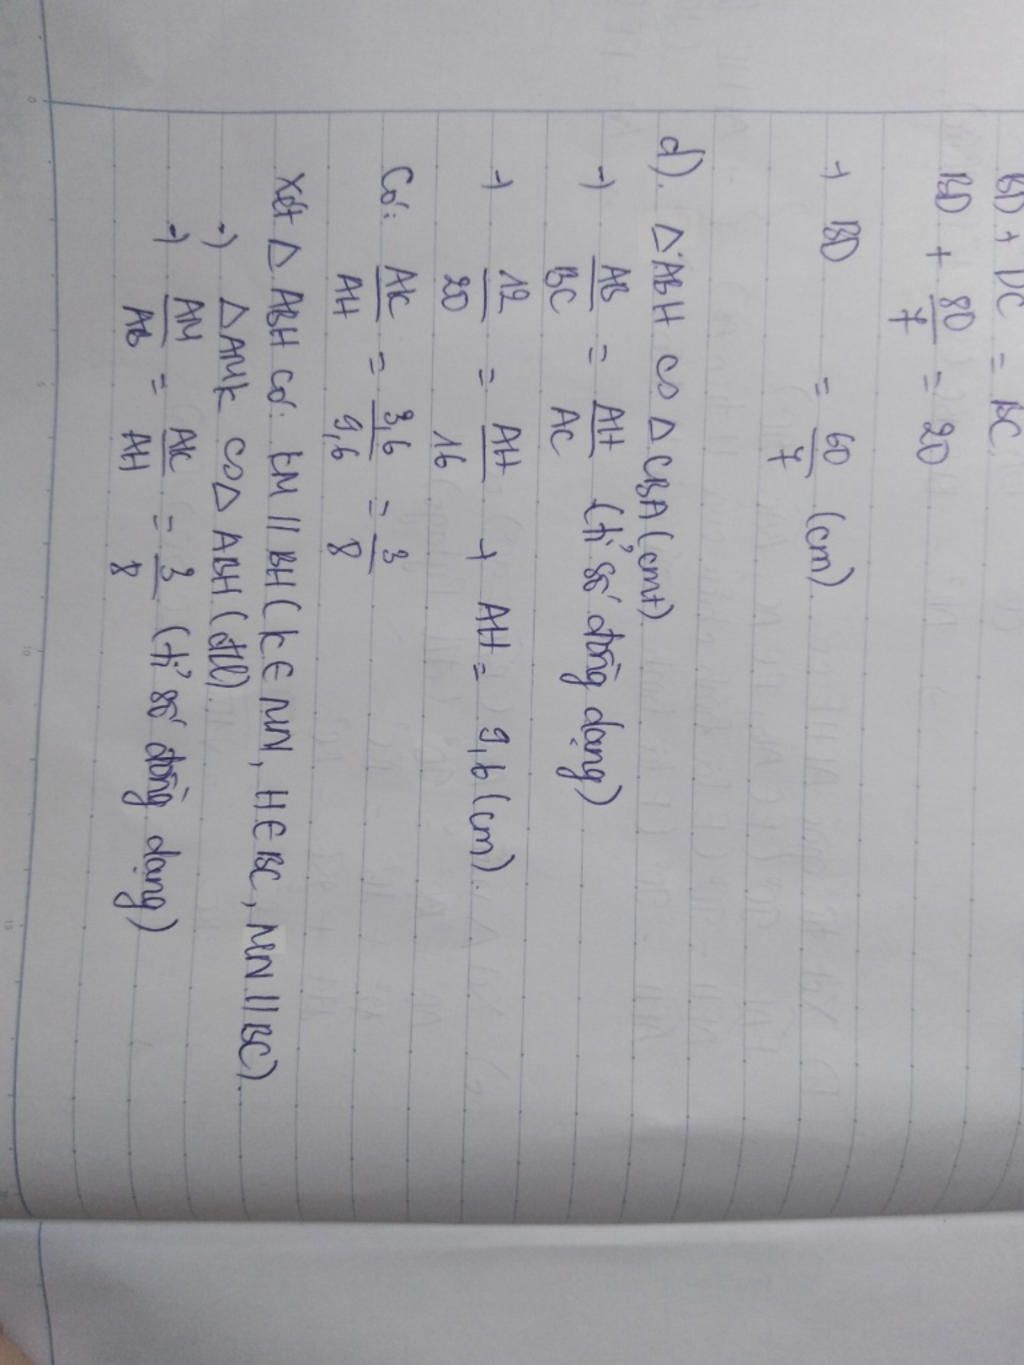 BD + DC = BC
BD + 80/7 = 20
→ BD = 60/7 (cm)
d). △ABH ∽ △CBA (cmt)
→ AB/BC = AH/AC (tỉ số đồng dạng)
→ 12/20 = AH/16 → AH = 9,6 (cm).
Có: AK/AH = 3,6/9,6 = 3/8
Xét △ABH có: KM // BH (K ∈ MN, H ∈ BC, MN // BC).
→ △AMK ∽ △ABH (đll)
→ AM/AB = AK/AH = 3/8 (tỉ số đồng dạng)